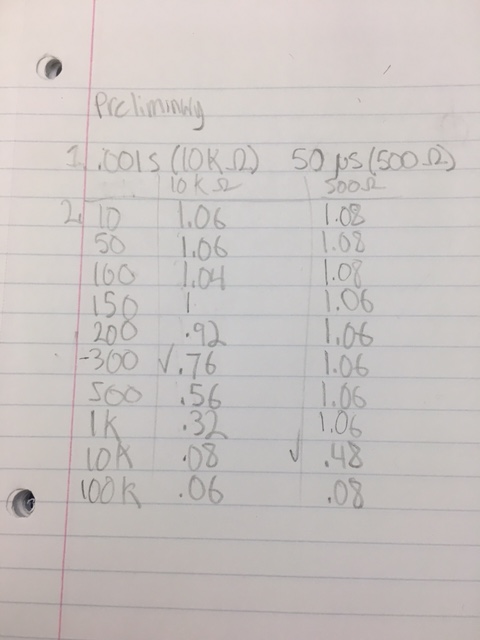 Preliminary
1. .001s (10K Ω) 50 µs (500 Ω)
10 K Ω 500 Ω
2. 10 1.06 1.08
50 1.06 1.08
100 1.04 1.08
150 1 1.06
200 .92 1.06
-300 √.76 1.06
500 .56 1.06
1K .32 1.06
10K .08 √ .48
100K .06 .08